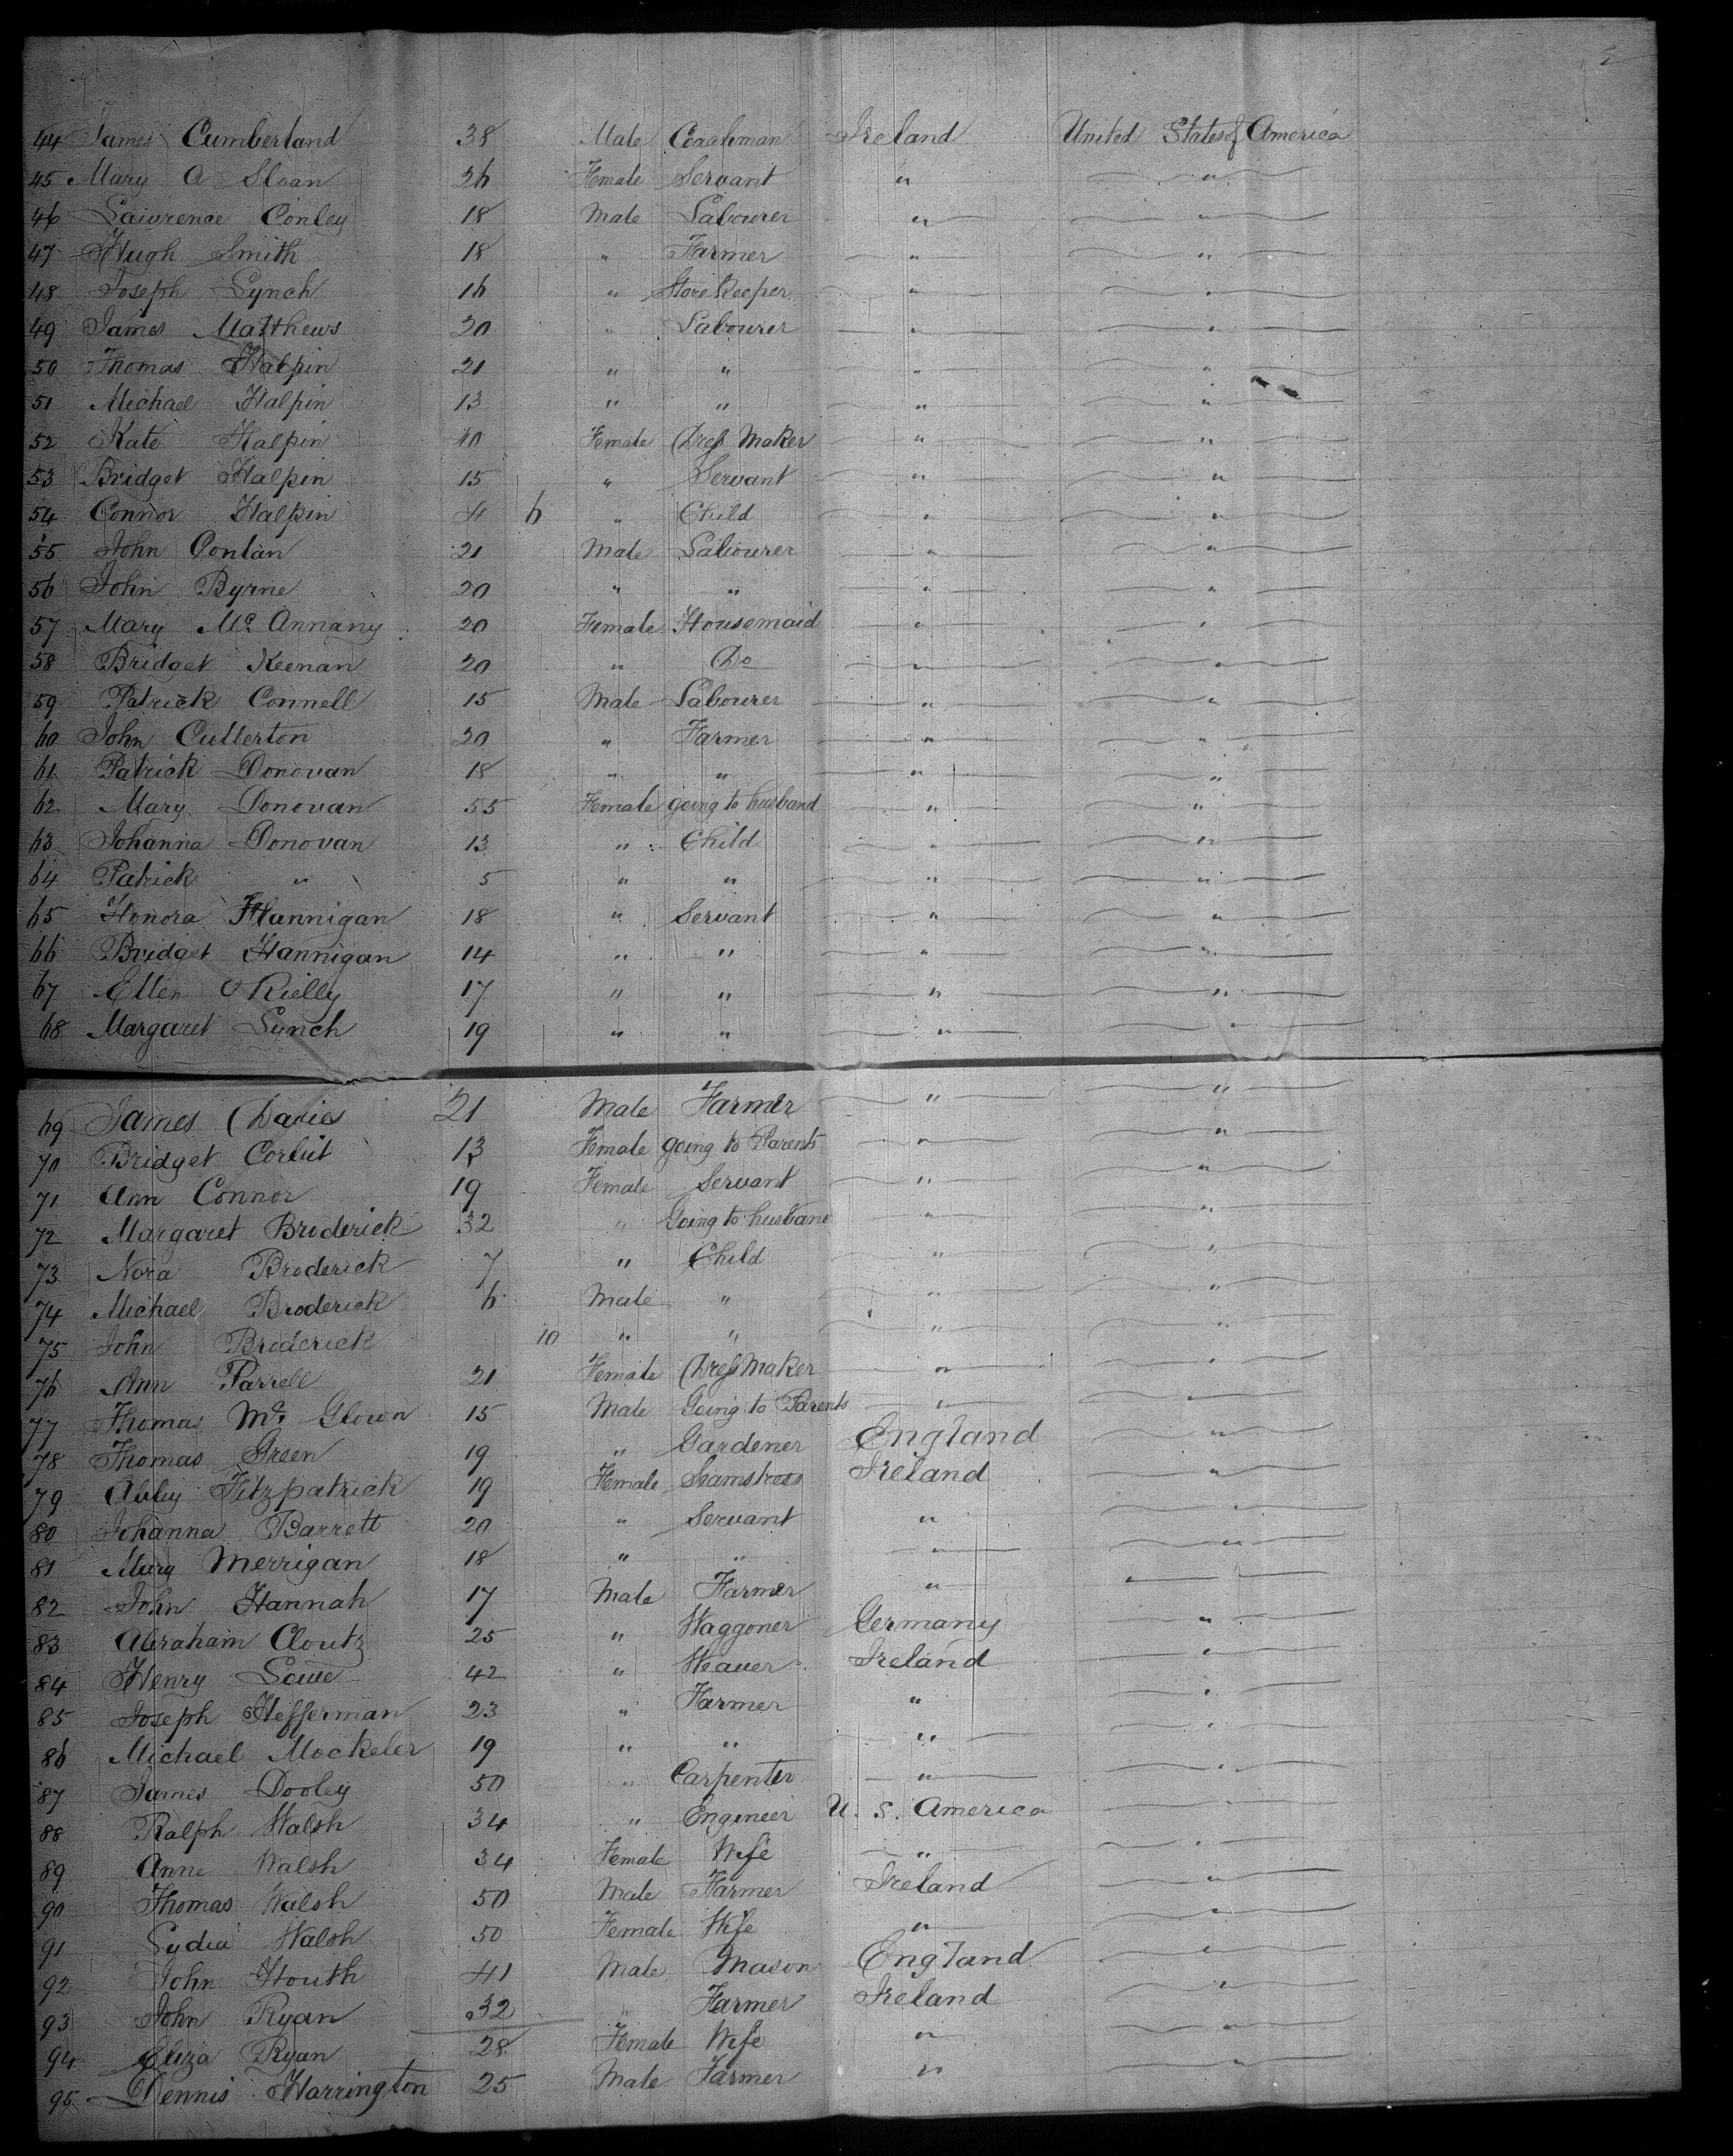 44 James Cumberland 38 Male Coachman Ireland United States of America
45 Mary A Sloan 26 Female Servant " "
46 Lawrence Conley 18 Male Labourer " "
47 Hugh Smith 18 " Farmer " "
48 Joseph Lynch 16 " Store Keeper " "
49 James Matthews 20 " Labourer " "
50 Thomas Halpin 21 " " " "
51 Michael Halpin 13 " " " "
52 Kate Halpin 40 Female Dress Maker " "
53 Bridget Halpin 15 " Servant " "
54 Connor Halpin 4 6 " Child " "
55 John Conlan 21 Male Labourer " "
56 John Byrne 20 " " " "
57 Mary Mc Annany 20 Female Housemaid " "
58 Bridget Keenan 20 " Do " "
59 Patrick Connell 15 Male Labourer " "
60 John Cullerton 20 " Farmer " "
61 Patrick Donovan 18 " " " "
62 Mary Donovan 55 Female going to husband " "
63 Johanna Donovan 13 " Child " "
64 Patrick " 5 " " " "
65 Honora Hannigan 18 " Servant " "
66 Bridget Hannigan 14 " " " "
67 Ellen O Rielly 17 " " " "
68 Margaret Lynch 19 " " " "
69 James Davies 21 Male Farmer " "
70 Bridget 13 Female going to Parents " "
71 Ann Connor 19 Female Servant " "
72 Margaret Broderick 32 " Going to husband " "
73 Nora Broderick 7 " Child " "
74 Michael Broderick 6 Male " " "
75 John Broderick 10 " " " "
76 Ann Farrell 21 Female Dress Maker " "
77 Thomas Mc Glown 15 Male Going to Parents " "
78 Thomas Green 19 " Gardener England "
79 Abby Fitzpatrick 19 Female Seamstress Ireland "
80 Johanna Barrett 20 " Servant " "
81 Mary Merrigan 18 " " " "
82 John Hannah 17 Male Farmer " "
83 Abraham Cloutz 25 " Waggoner Germany "
84 Henry Lowe 42 " Weaver Ireland "
85 Joseph Hefferman 23 " Farmer " "
86 Michael Mockeler 19 " " " "
87 James Dooley 50 " Carpenter " "
88 Ralph Walsh 34 " Engineer U. S. America "
89 Anne Walsh 34 Female Wife " "
90 Thomas Walsh 50 Male Farmer Ireland "
91 Lydia Walsh 50 Female Wife " "
92 John Houth 41 Male Mason England "
93 John Ryan 32 " Farmer Ireland "
94 Eliza Ryan 28 Female Wife " "
95 Dennis Harrington 25 Male Farmer " "